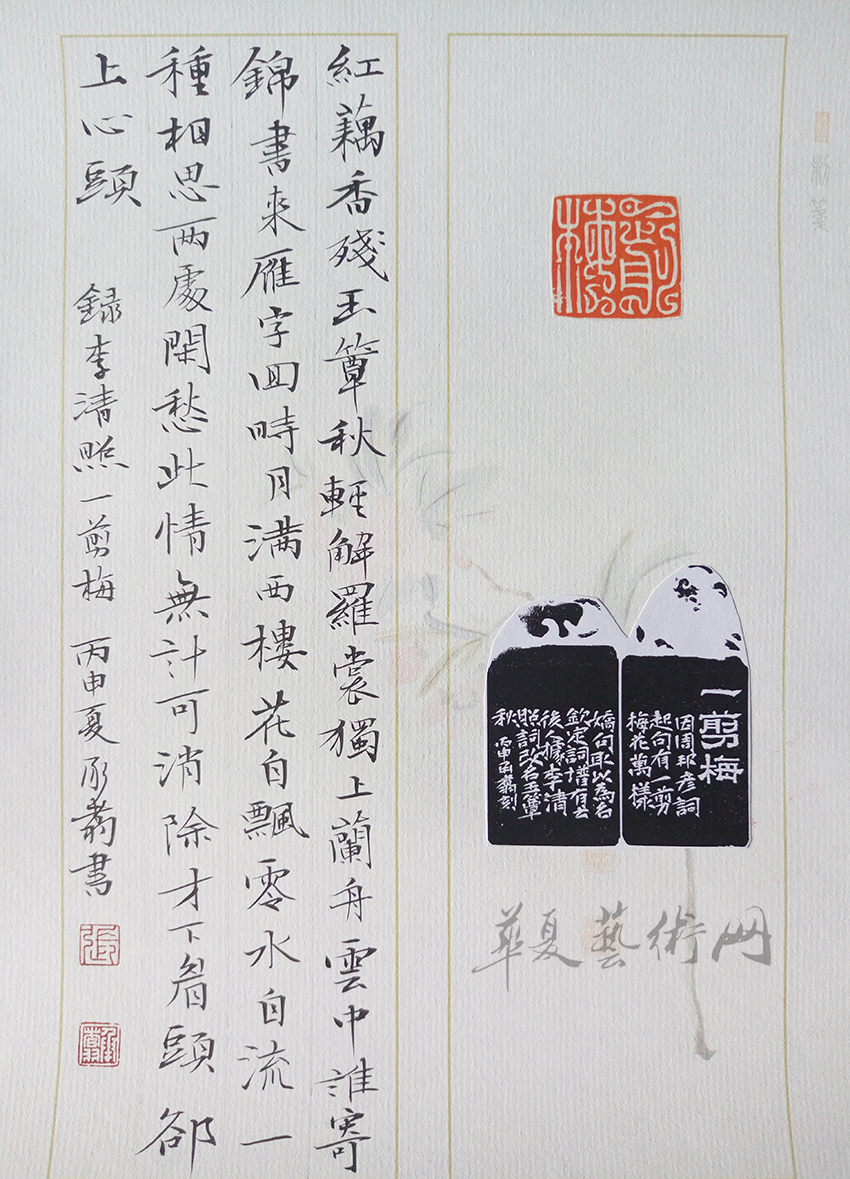 一剪梅
因周邦彦詞
起句有一剪
梅花萬樣
嬌句取以為名
欽定詞譜有云
後人據李清
照詞改名玉簟
秋 丙申 刻
紅藕香殘玉簟秋輕解羅裳獨上蘭舟雲中誰寄
錦書來雁字回時月满西樓花自飄零水自流一
種相思两處閑愁此情無計可消除才下眉頭郤
上心頭 録李清照一剪梅 丙申夏 書
華夏藝術网